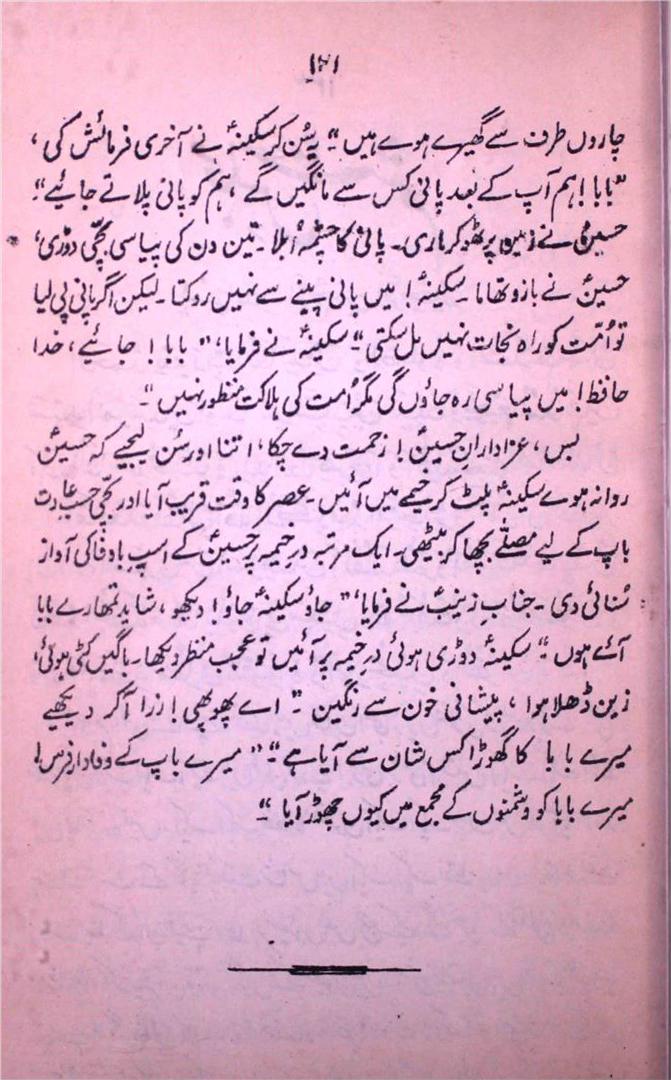 ۱۴۱
چاروں طرف سے گھیرے ہوے ہیں“ یہ سُن کر سکینہؑ نے آخری فرمائش کی،
”بابا! ہم آپ کے بعد پانی کس سے مانگیں گے، ہم کو پانی پلاتے جائیے“۔
حسینؑ نے زمین پر ٹھوکر ماری۔ پانی کا چشمہ اُبلا۔ تین دن کی پیاسی بچّی دوڑی،
حسینؑ نے بازو تھاما۔ سکینہؑ! میں پانی پینے سے نہیں روکتا۔ لیکن اگر پانی پی لیا
تو اُمّت کو راہ نجات نہیں مل سکتی“۔ سکینہؑ نے فرمایا، ”بابا! جائیے، خدا
حافظ! میں پیاسی رہ جاؤں گی مگر اُمت کی ہلاکت منظور نہیں“۔
بس، عزادارانِ حسینؑ! زحمت دے چکا، اتنا اور سُن لیجیے کہ حسینؑ
روانہ ہوے سکینہؑ پلٹ کر خیمے میں آئیں۔ عصر کا وقت قریب آیا اور بچّی حسبِ عادت
باپ کے لیے مصلّے بچھا کر بیٹھی۔ ایک مرتبہ درِ خیمہ پر حسینؑ کے اسپِ باوفا کی آواز
سُنائی دی۔ جنابِ زینبؑ نے فرمایا، ”جاؤ سکینہؑ جاؤ! دیکھو، شاید تمھارے بابا
آئے ہوں“۔ سکینہؑ دوڑی ہوئی درِ خیمہ پر آئیں تو عجب منظر دیکھا۔ باگیں کٹی ہوئی،
زین ڈھلا ہوا، پیشانی خون سے رنگین۔ ”اے پھوپھی! ذرا آکر دیکھیے
میرے بابا کا گھوڑا کس شان سے آیا ہے“۔ ”میرے باپ کے وفادار فرس!
میرے بابا کو دشمنوں کے مجمع میں کیوں چھوڑ آیا“۔